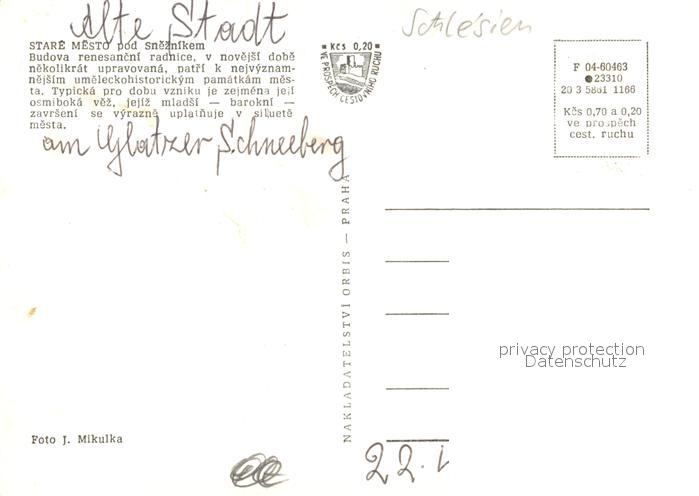 Alte Stadt
Schlesien
STARÉ MĚSTO pod Sněžníkem
Budova renesanční radnice, v novější době
několikrát upravovaná, patří k nejvýznam-
nějším uměleckohistorickým památkám měs-
ta. Typická pro dobu vzniku je zejména její
osmiboká věž, jejíž mladší — barokní —
završení se výrazně uplatňuje v siluetě
města.
am Glatzer Schneeberg
Kčs 0,20
VE PROSPĚCH CESTOVNÍHO RUCHU
F 04-60463
23310
20 3 5861 1166
Kčs 0,70 a 0,20
ve prospěch
cest. ruchu
NAKLADATELSTVÍ ORBIS — PRAHA
privacy protection
Datenschutz
Foto J. Mikulka
22.